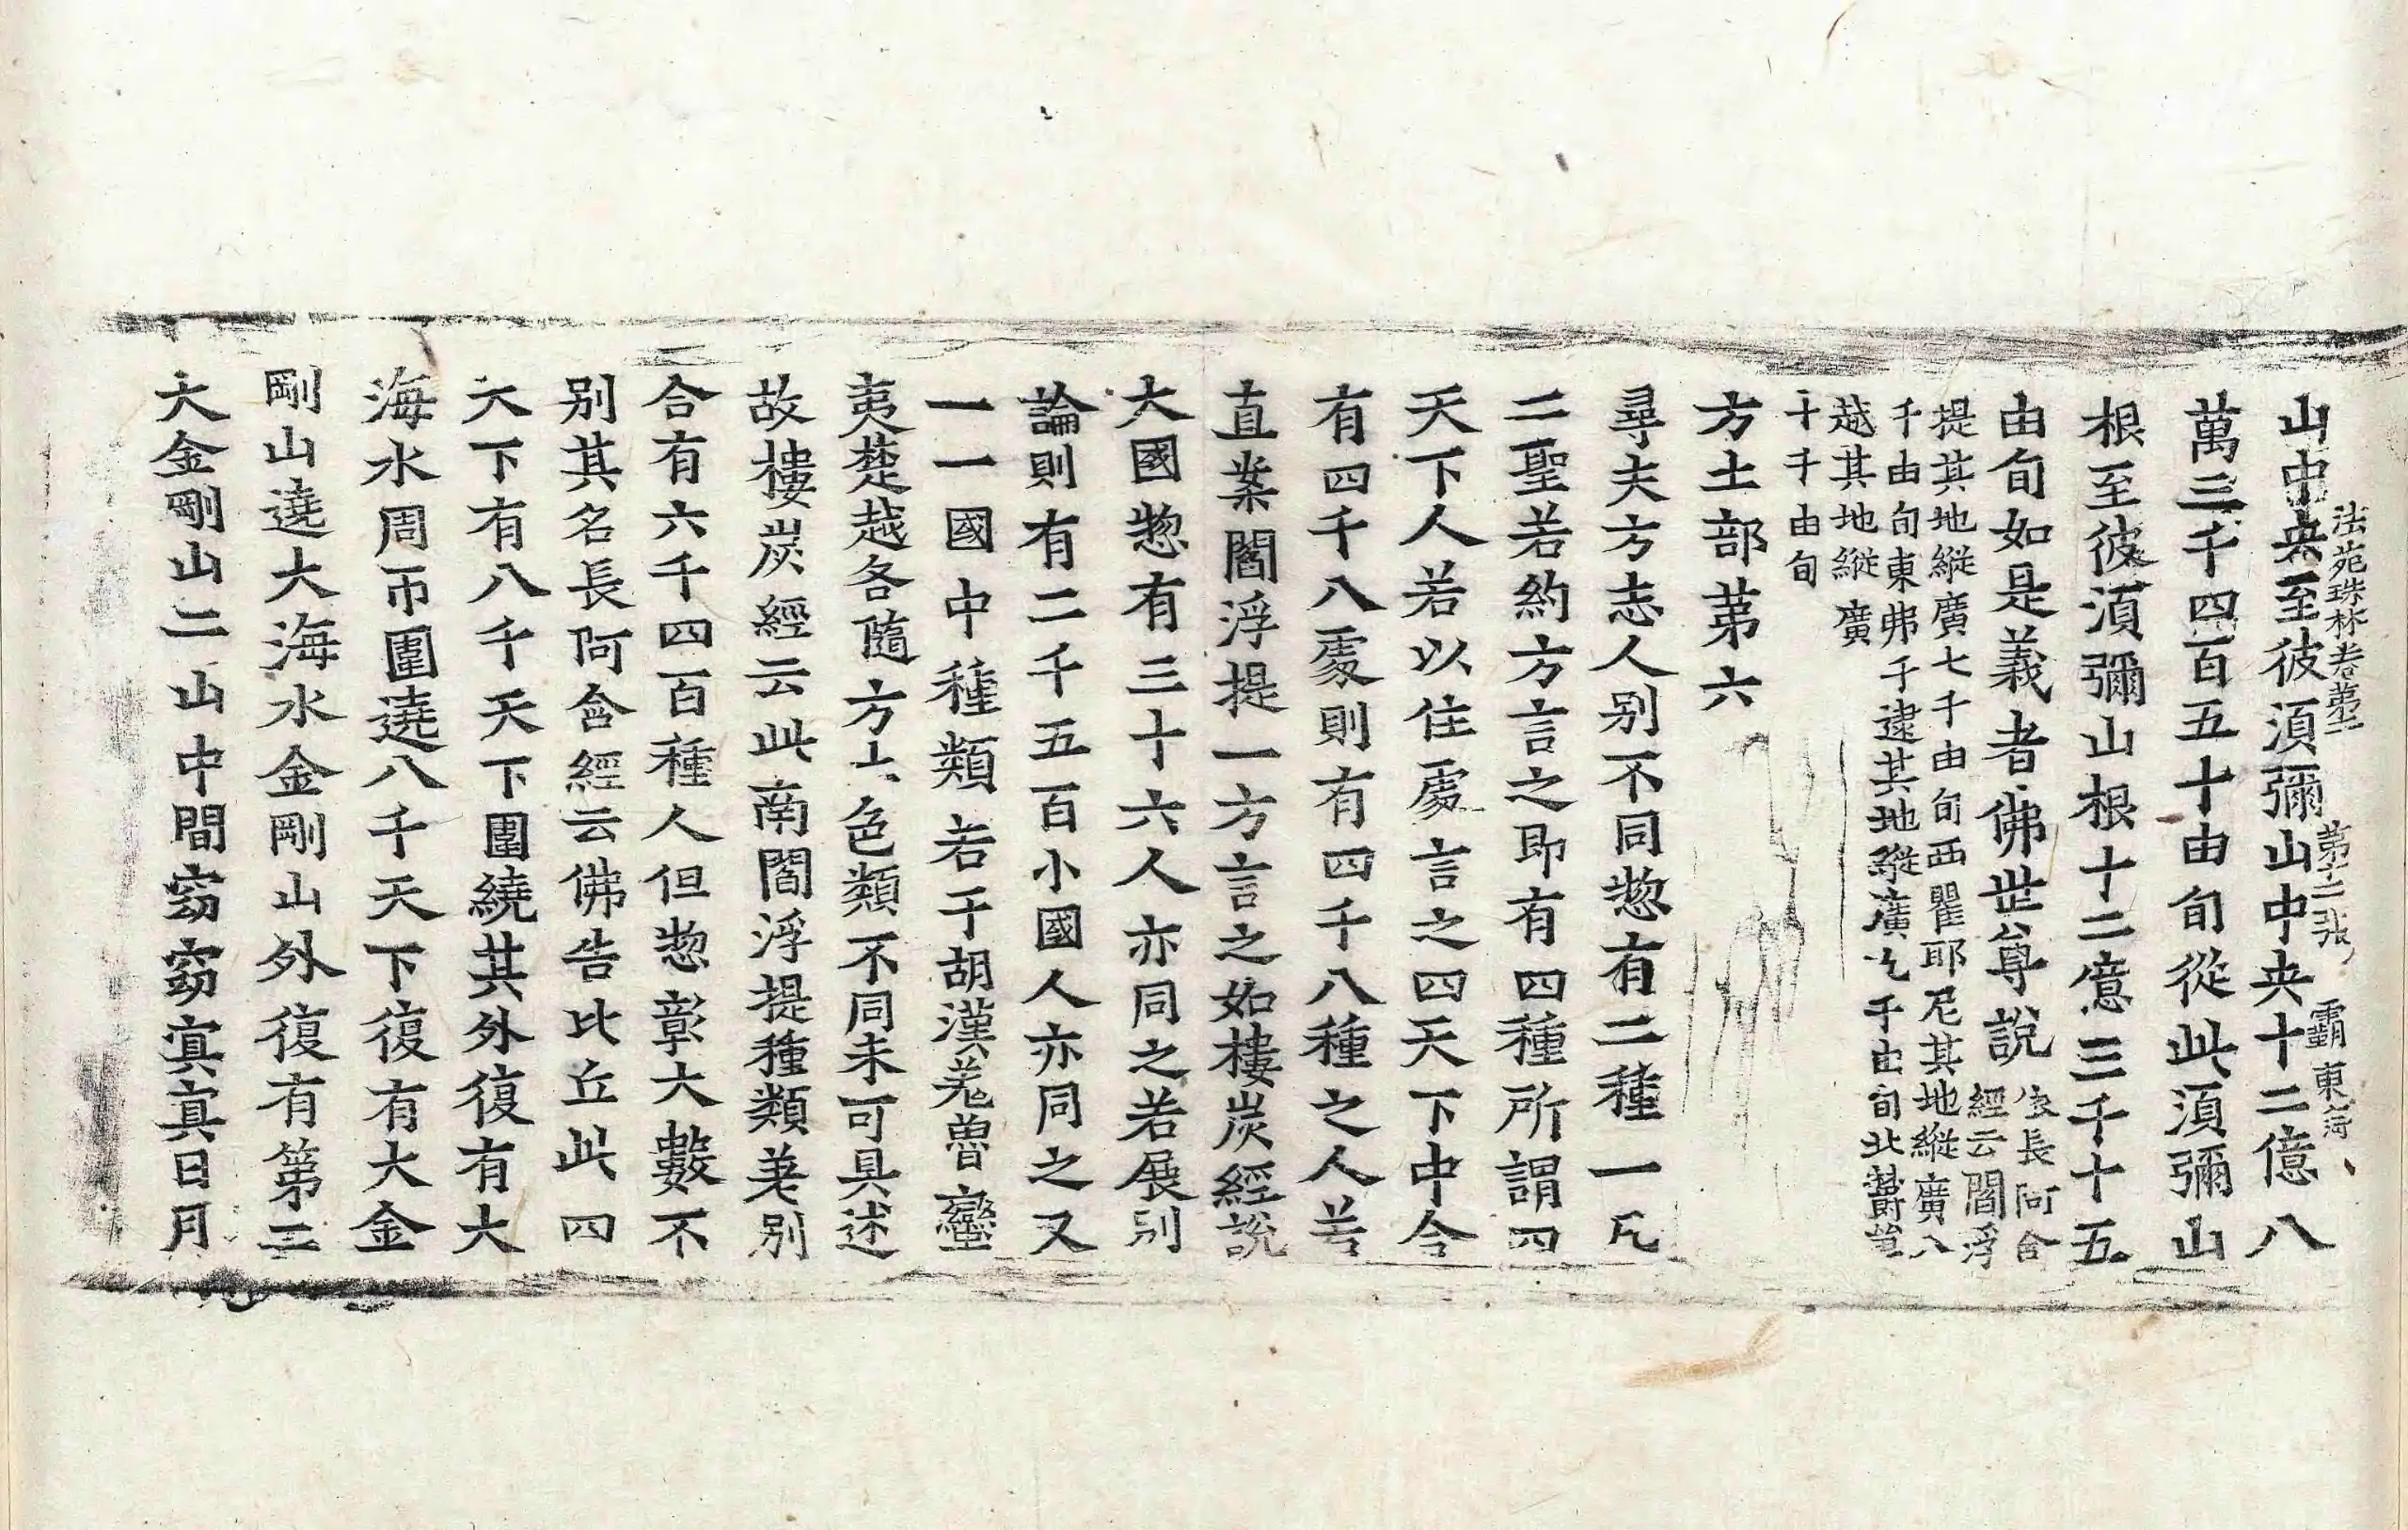 法苑珠林卷第二 第十二張 霸 東海
山中央至彼湏彌山中央十二億八
萬三千四百五十由旬從此湏彌山
根至彼湏彌山根十二億三千十五
由旬如是義者佛世尊說
依長阿含
經云閻浮
提其地縱廣七千由旬西瞿耶尼其地縱廣八
千由旬東弗于逮其地縱廣九千由旬北欝單
越其地縱廣
十千由旬
方土部第六
尋夫方志人别不同惣有二種一凡
二聖若約方言之即有四種所謂四
天下人若以住處言之四天下中令
有四千八處則有四千八種之人若
直案閻浮提一方言之如樓炭經說
大國惣有三十六人亦同之若展别
論則有二千五百小國人亦同之又
一一國中種類若干胡漢羌魯蠻
夷楚越各隨方土色類不同未可具述
故樓炭經云此南閻浮提種類差别
合有六千四百種人但惣彰大數不
别其名長阿含經云佛告比丘此四
天下有八千天下圍繞其外復有大
海水周帀圍遶八千天下復有大金
剛山遶大海水金剛山外復有第二
大金剛山二山中間窈窈冥冥日月